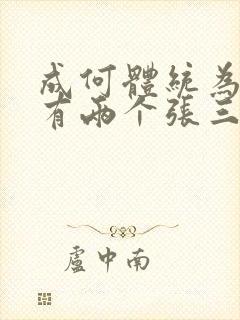 成何體統為
有兩个張三
盧中南